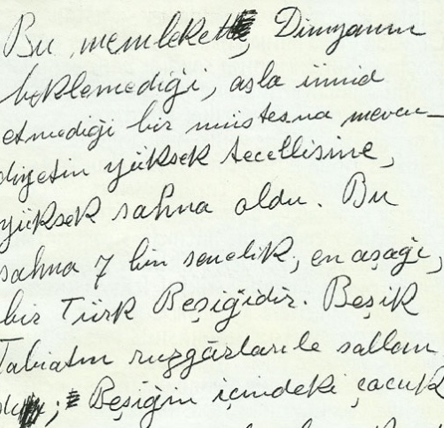 Bu memleket, Dünyanın
beklemediği, asla ümid
etmediği bir müstesna mevcu-
diyetin yüksek tecellisine,
yüksek sahna oldu. Bu
sahna 7 bin senelik, en aşağı,
bir Türk Beşiğidir. Beşik
Tabiatın ruzgârlarıle sallan
Beşiğin içindeki çocuk